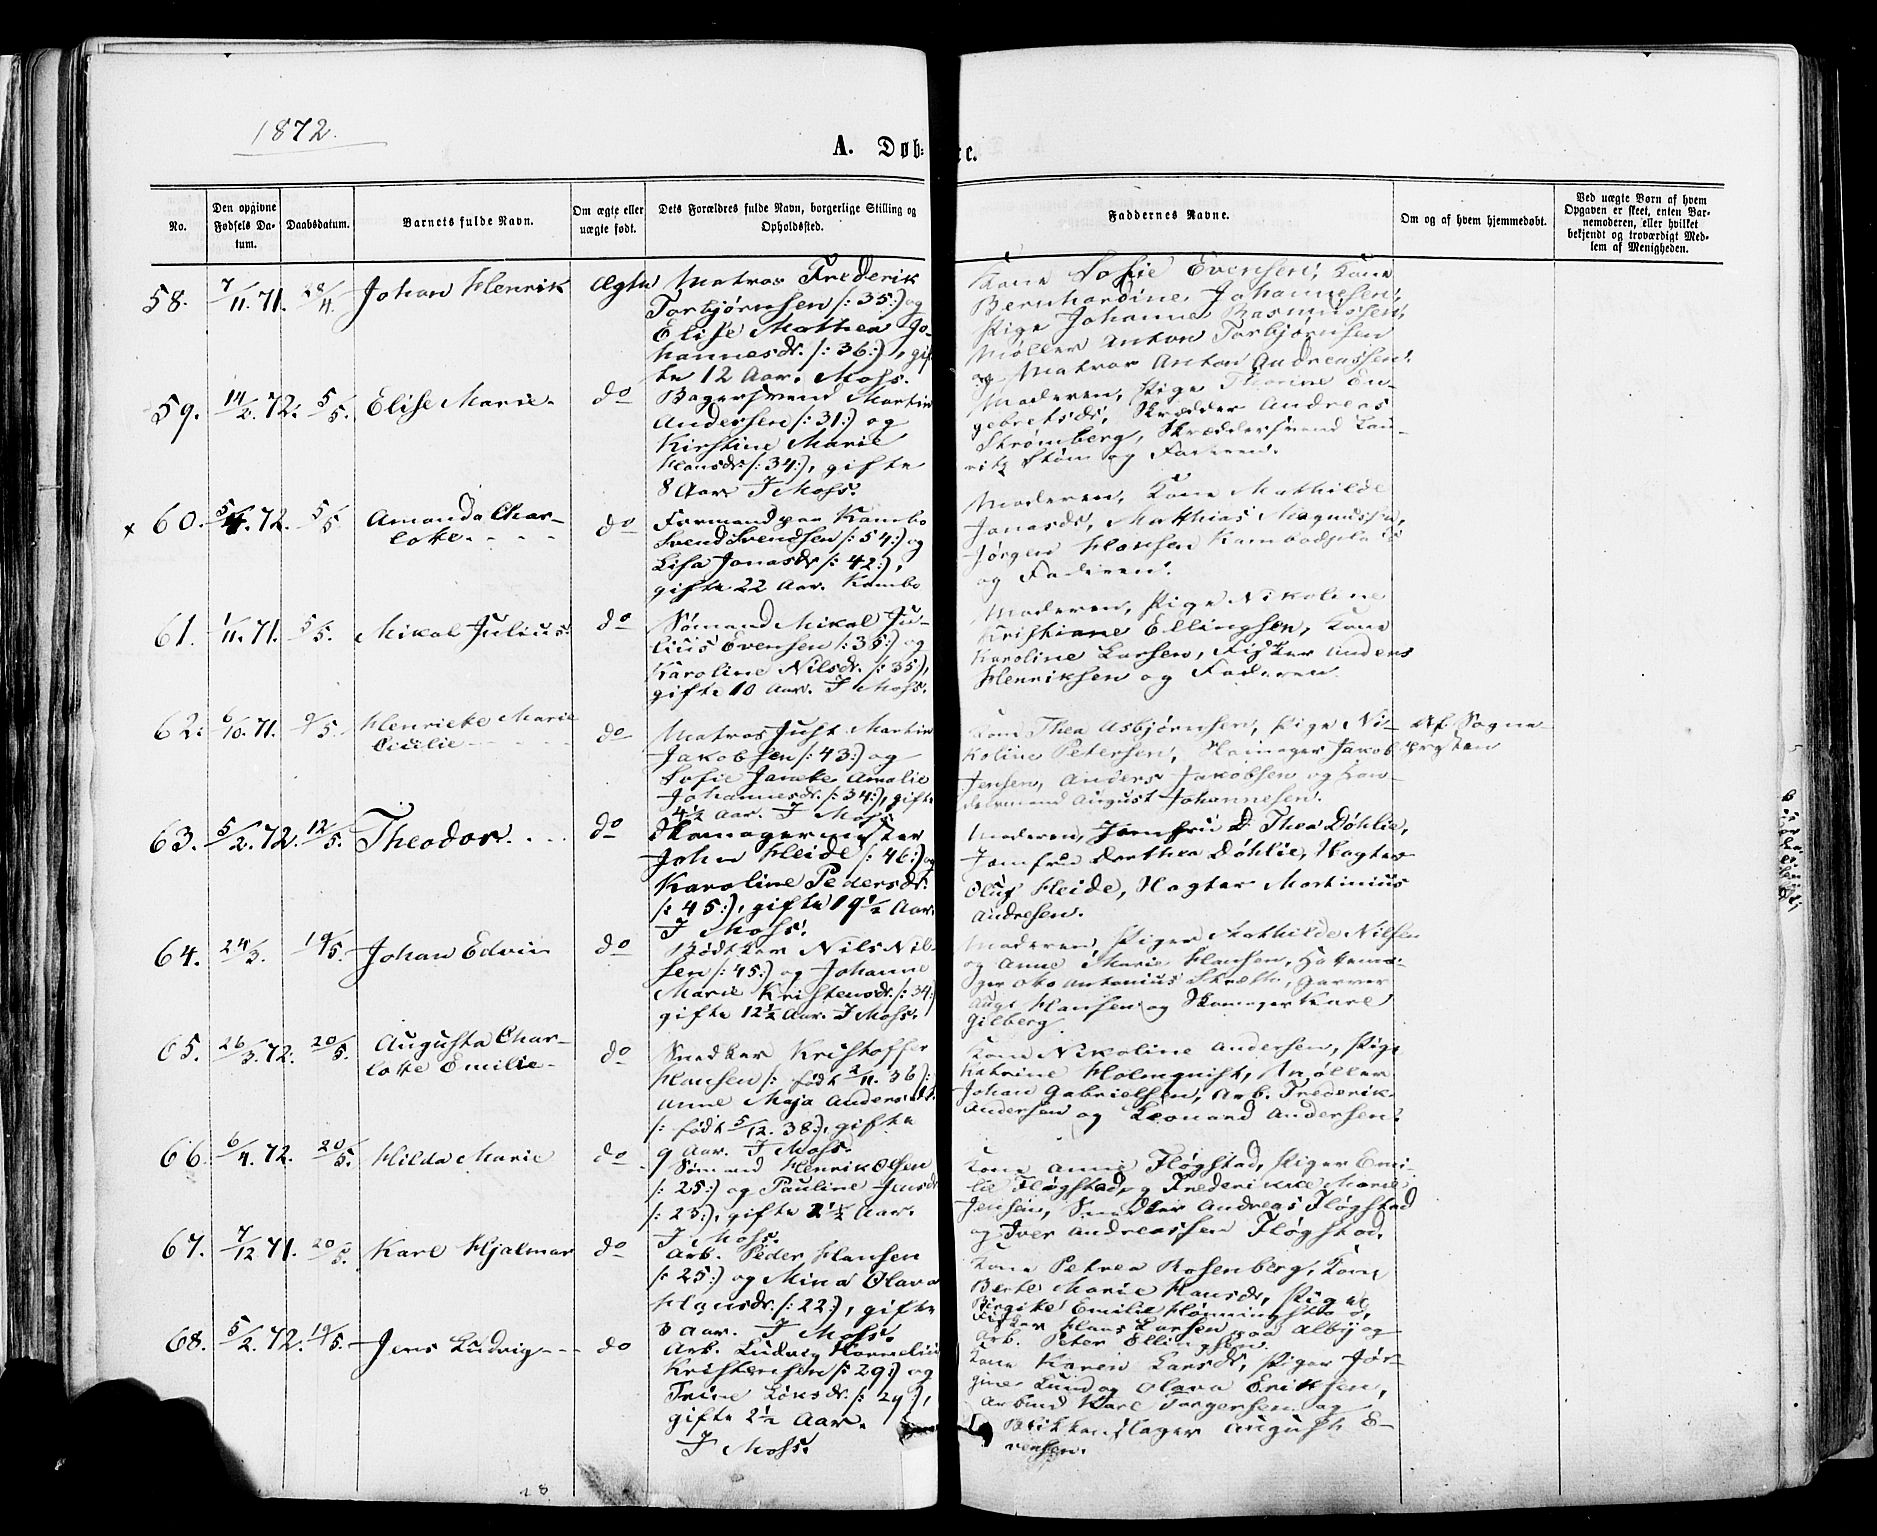 1872.
A. Døb- c.
No.
Den opgivne Fødsels Datum.
Daabsdatum.
Barnets fulde Navn.
Om ægte eller uægte født.
Dets Forældres fulde Navn, borgerlige Stilling og Opholdssted.
Faddernes Navne.
Om og af hvem hjemmedøbt.
Ved uægte Børn af hvem Opgaven er skeet, enten Barnemoderen, eller hvilket bekjendt og troværdigt Medlem af Menigheden.
58. 7/11. 71. 28/4. Johan Henrik Ægte Matros Frederik
Torbjørnsen /: 35:) og
Elise Mathea Jo-
hannesdr. /: 36:), gif-
te 12 Aar. Moss.
Kone Sofie Evensen, Kone
Bernhardine Johannesen,
Pige Johanne Rasmussen,
Møller Anton Torbjørnsen
og Matros Anton Andreassen.
59. 14/2. 72. 5/5. Elise Marie. do Bagersvend Martin
Andersen /: 31:) og
Kirstine Marie
Hansdr /: 34:), gifte
8 Aar. I Moss.
Moderen, Pige Thorine En-
gebretsdr, Skrædder Andreas
Strømberg, Skræddersvend Lau-
ritz Strøm og Faderen.
x 60. 5/4. 72. 5/5 Amanda Char-
lotte. do Formand paa Kambo
Svend Svendsen /: 54:) og
Lisa Jonasdr /: 42:),
gifte 22 Aar. Kambo
Moderen, Kone Mathilde
Jonasdr, Matthias Magnussen,
Jørgen Hansen Kambodplads
og Faderen.
61. 1/11. 71. 5/5. Mikal Julius. do Sømand Mikal Ju-
lius Evensen /: 35:) og
Karoline Nilsdr. /: 35),
gifte 10 Aar. I Moss.
Moderen, Pige Nikoline
Kristiane Ellingsen, Kone
Karoline Larsen, Fisker Anders
Henriksen og Faderen.
62. 6/10. 71. 9/5. Henriette Marie
Cicilie do Matros Just Martin
Jakobsen /: 43:) og
Sofie Janette Amalie
Johannesdr. /: 34:), gifte
4½ Aar. I Moss.
Kone Thea Asbjørnsen, Pige Ni-
koline Petersen, Skomager Jakob
Jensen, Anders Jakobsen og
August Johannesen.
Af Sogne
presten
63. 5/2. 72. 12/5. Theodor. do Skomagermester
John Heide /: 46:) og
Karoline Pedersdr.
/: 45:), gifte 19½ Aar.
I Moss.
Moderen, Jomfru D. Thea Döhlie,
Jomfru Dorthea Döhlie,
Oluf Heide, Martinius
Andresen.
64. 24/3. 19/5. Johan Edvin do Bødtker Nils Nil-
sen /: 45:) og Johanne
Marie Kristensdr. /: 34:)
gifte 12½ Aar. I Moss.
Moderen, Piger Mathilde Nilsen
og Anne Marie Hansen, Hattema-
ger Otto Antonius Garver
Aug. Hansen og Skomager Karl
Gilberg.
65. 26/3. 72. 20/5. Augusta Char-
lotte Emilie do Snedker Kristoffer
Hansen /: født 2/11. 36):
Anne Maja Andersdtr.
/: født 5/12. 38:), gifte
9 Aar. I Moss.
Kone Nikoline Andersen, Pige
Katrine Holmquist, Møller
Johan Gabrielsen, Arb. Frederik
Andersen og Leonard Andersen.
66. 6/4. 72. 20/5. Hilda Marie do Sømand Henrik Olsen
/: 25:) og Pauline Jensdr
/: 25:), gifte 2½ Aar.
I Moss.
Kone Anne Fløgstad, Piger Emi-
lie Fløgstad og Frederikke Marie
Jensen, Snedker Andreas Fløgstad
og Iver Andreassen Fløgstad.
67. 7/12 71. 20/5. Karl Hjalmar do Arb. Peder Hansen
/: 25:) og Mina Olava
Hansdr. /: 22:), gifte
3 Aar. I Moss.
Kone Petrea Rosenberg, Kone
Berte Marie Hansdr, Pige
Birgitte Emilie
Fisker Hans Larsen paa Alby og
Arb. Peter Ellingsen.
68. 5/2. 72. 19/5. Jens Ludvig do Arb. Ludvig Kornelius
Kristensen /: 29:) og
Trine Larsdr. /: 29:),
gifte 2½ Aar.
I Moss.
Kone Karen Larsdr, Piger Jør-
gine Lund og Olava Eriksen,
Arbmd Karl Torgersen og
Blikkenslager August E-
vensen.